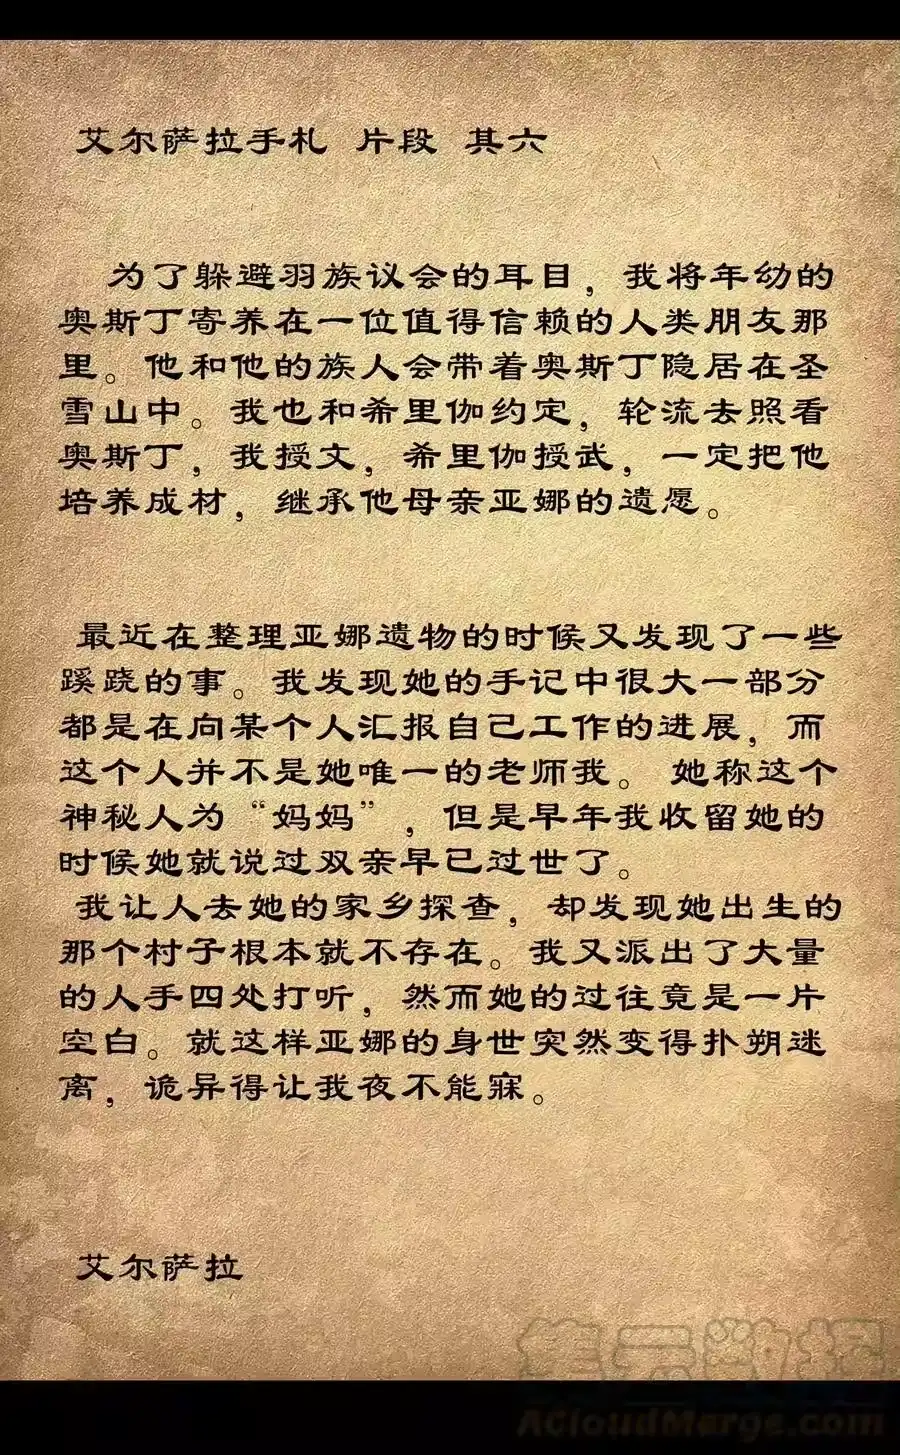 艾尔萨拉手札 片段 其六
为了躲避羽族议会的耳目，我将年幼的
奥斯丁寄养在一位值得信赖的人类朋友那
里。他和他的族人会带着奥斯丁隐居在圣
雪山中。我也和希里伽约定，轮流去照看
奥斯丁，我授文，希里伽授武，一定把他
培养成材，继承他母亲亚娜的遗愿。
最近在整理亚娜遗物的时候又发现了一些
蹊跷的事。我发现她的手记中很大一部分
都是在向某个人汇报自己工作的进展，而
这个人并不是她唯一的老师我。 她称这个
神秘人为“妈妈”，但是早年我收留她的
时候她就说过双亲早已过世了。
我让人去她的家乡探查，却发现她出生的
那个村子根本就不存在。我又派出了大量
的人手四处打听，然而她的过往竟是一片
空白。就这样亚娜的身世突然变得扑朔迷
离，诡异得让我夜不能寐。
艾尔萨拉
集云数据
ACloudMerge.com